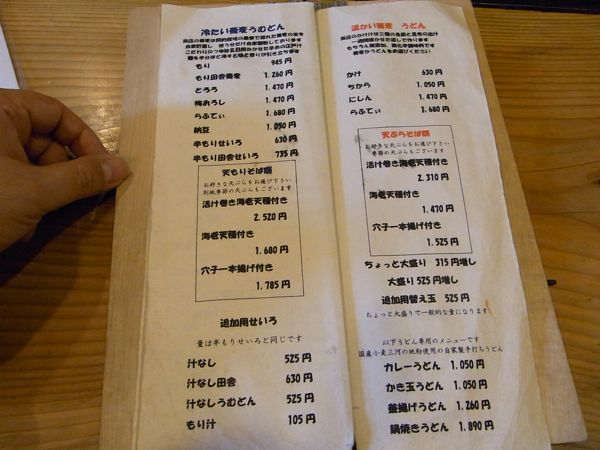 冷たい蕎麦うむどん
もり 945円
もり田舎蕎麦 1.260円
とろろ 1.470円
梅おろし 1.470円
らふてぃ 1.680円
納豆 1.050円
半もりせいろ 630円
半もり田舎せいろ 735円
天もりそば膳
お好きな天ぷらをお選び下さい
別紙季節の天ぷらもございます
活け巻き海老天種付き
2.520円
海老天種付き
1.680円
穴子一本揚げ付き
1.785円
追加用せいろ
量は半もりせいろと同じです
汁なし 525円
汁なし田舎 630円
汁なしうむどん 525円
もり汁 105円
温かい蕎麦 うどん
かけ 630円
ちから 1.050円
にしん 1.470円
らふてぃ 1.680円
天ぷらそば膳
お好きな天ぷらをお選び下さい
季節の天ぷらもございます
活け巻き海老天種付き
2.310円
海老天種付き
1.470円
穴子一本揚げ付き
1.525円
ちょっと大盛り 315円増し
大盛り525円増し
追加用替え玉 525円
ちょっと大盛りで一般的な量になります
以下うどん専用のメニューです
国産小麦三河の地粉使用の自家製手打ちうどん
カレーうどん 1.050円
かき玉うどん 1.050円
釜揚げうどん 1.260円
鍋焼きうどん 1.890円